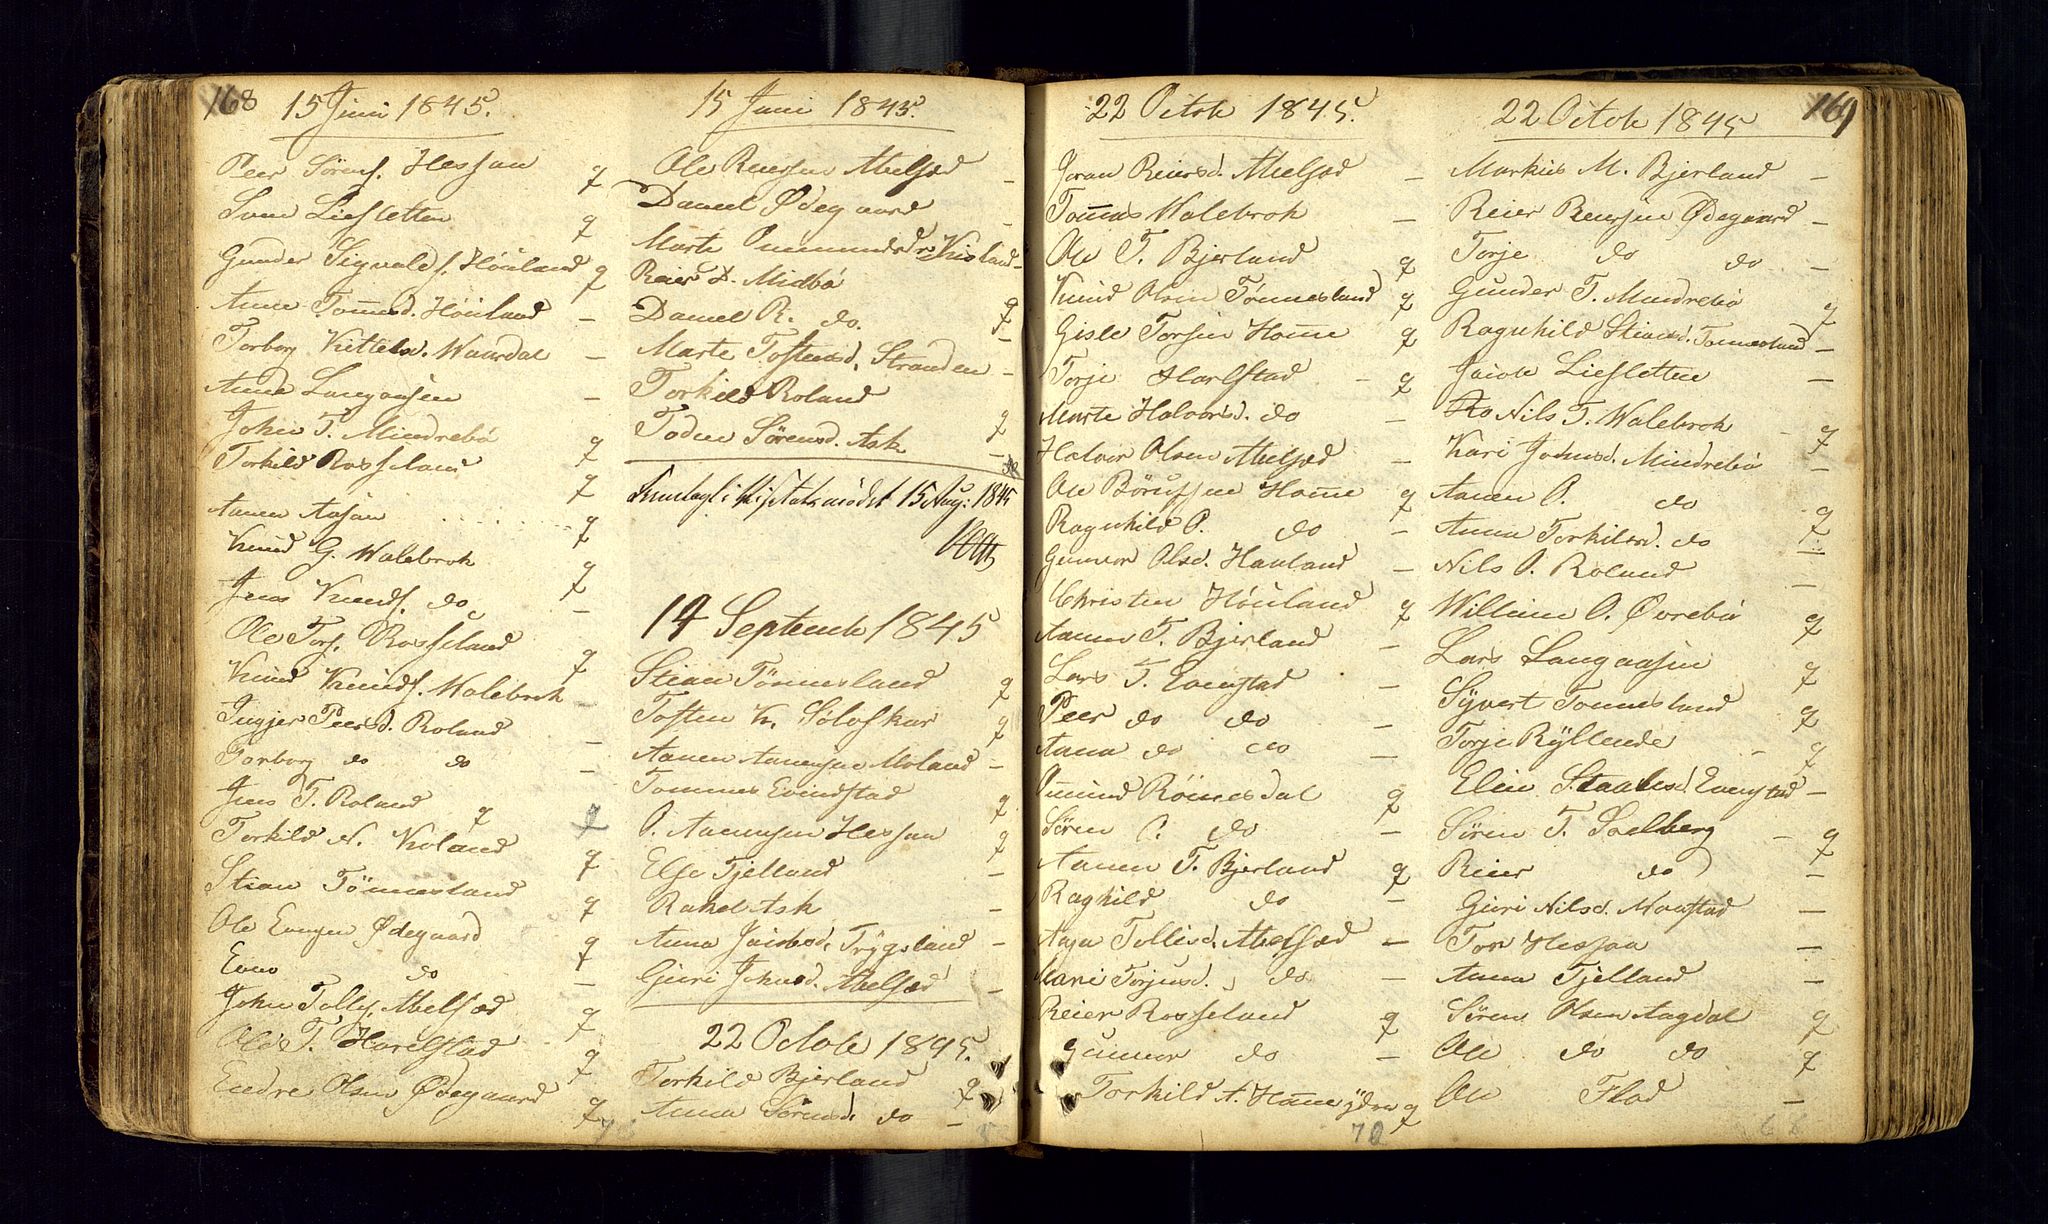 168
15 Juni 1845.
Peer Sørens. Hessaa q
Sven Liesletten q
Gunder Sigvalds. Höüland q
Anne Tom̄esd. Höüland –
Torborg Kittelsd. Waardal –
Anne Langaasen –
John T. Mindrebö q
Torkild Rosseland q
Aanen Aasen q
Knud G. Walebrok q
Jens Knuds. do –
Ole Tors. Rosseland q
Knud Knuds. Walebrok –
Ingjer Peersd. Roland –
Torborg do do –
Jens T. Roland q
Torkild N. Roland q
Stian Tönnesland q
Ole Evensen Ødegaard q
Even do –
John Tollefs. Abelsæd q
Ole T. Harelstad q
Endre Olsen Ødegaard q
15 Juni 1845.
Ole Reiersen Abelsæd –
Daniel Ødegaard –
Marte Ommundsd. –
Reier D. Midbö q
Daniel R. do. –
Marte Tostensd. Stranden –
Torkild Roland q
Todne Sørensd. Ask –
15 Aug: 1845
14 Septemb 1845
Stian Tönnesland q
Tosten K. Søloskar q
Aanen Aanensen Moland –
Tommes Evindstad q
O. Aanensen Hessaa q
Else Tjelland –
Rakel Ask –
Anna Jacobsd. Trygsland –
Guri Johnsd. Abelsæd –
22 Octob 1845.
Torkild Bjerland q
Anna Sörensd. do –
22 Octob 1845.
Joran Reiersd. Abelsæd –
Tom̄es Walebrok –
Ole T. Bjerland q
Knud Olsen Tønnesland q
Gisle Torsen Hom̄e q
Torje Harlstad – q
Marte Halvorsd. do –
Halvor Olsen Abelsæd –
Ole Börufsen Hom̄e q
Ragnhild O. do –
Gunvor Olsd. Hauland –
Christen Höüland q
Aanen T. Bjerland –
Lars T. Evenstad –
Peer do do –
Anna do do –
Om̄und Römesdal q
Sören O. do –
Aanen T. Bjerland q
Raghild do –
Aasa Tollefsd. Abelsæd –
Mari Torjusd. do –
Reier Rosseland q
Gunvor do –
Torkild A. Hom̄e ydre q
70
22 Octob 1845
169
Markus M. Bjerland –
Reier Reiersen Ødegaard –
Torje do do –
Gunder T. Mindrebö q
Ragnhild Stiansd. Tonnesland –
Jacob Liesletten –
Nils T. Walebrok – q
Kari Johnsd. Mindrebö –
Aanen O. do q
Anna Torkilsd. do –
Nils O. Roland –
Willum O. Øvrebö q
Lars Langaasen q
Syvert Tonnesland q
Torje Ryllende – q
Elen Staalesd. Evenstad –
Sören T. Soelberg – q
Reier do –
Guri Nilsd. Monstad –
Tore Hessaa –
Anna Tjelland –
Sören Olsen Aagdal q
Ole do do q
Ole Flad –